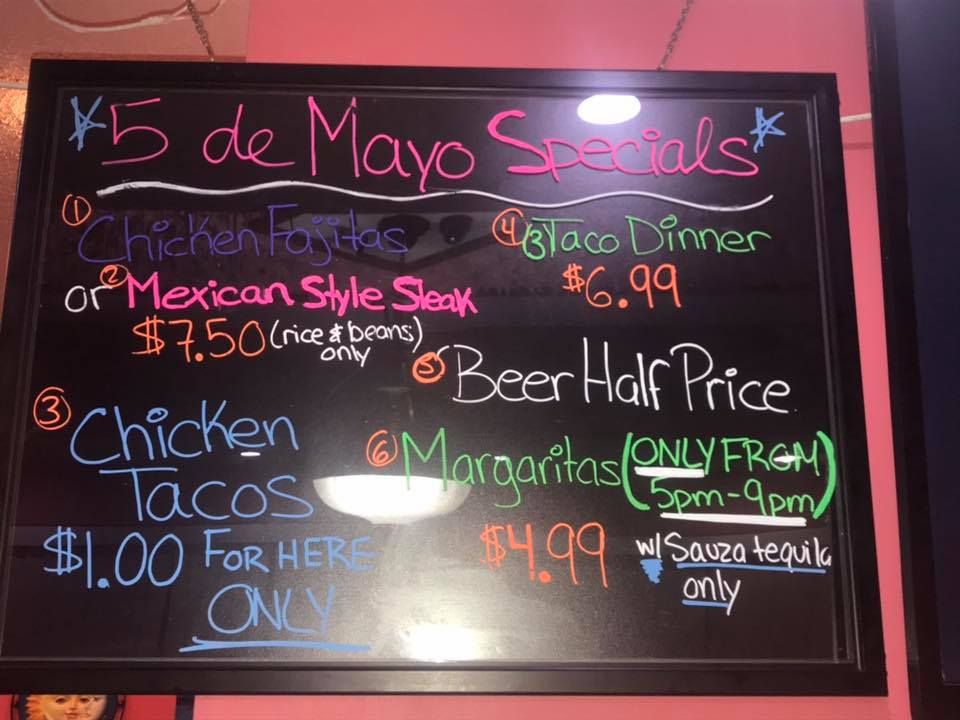 5 de Mayo Specials
① Chicken Fajitas
or ② Mexican Style Steak
$7.50 (rice & beans)
only
③ Chicken
Tacos
$1.00 FOR HERE
ONLY
④ (3) Taco Dinner
$6.99
⑤ Beer Half Price
⑥ Margaritas (ONLY FROM
5pm-9pm)
$4.99 w/ Sauza tequila
only